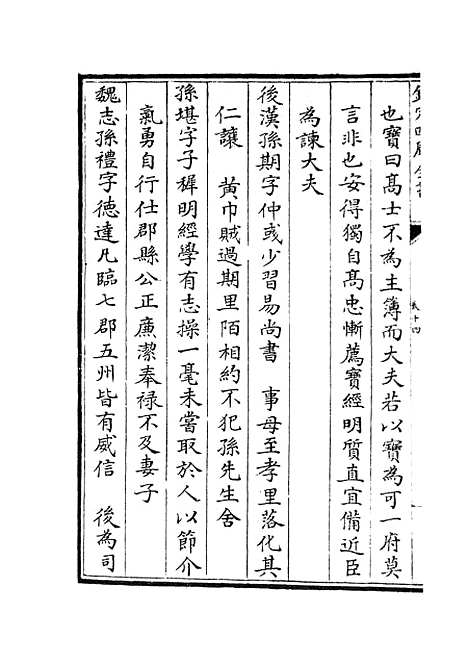 也寳曰髙士不為主簿而大夫若以寳為可一府莫
言非也安得獨自髙忠慚薦寳經明質直宜備近臣
為諫大夫
後漢孫期字仲彧少習易尚書　事母至孝里落化其
仁讓　黄巾賊過期里陌相約不犯孫先生舍
孫堪字子穉明經學有志操一毫未嘗取於人以節介
氣勇自行仕郡縣公正廉潔奉祿不及妻子
魏志孫禮字德達凡臨七郡五州皆有威信　後為司